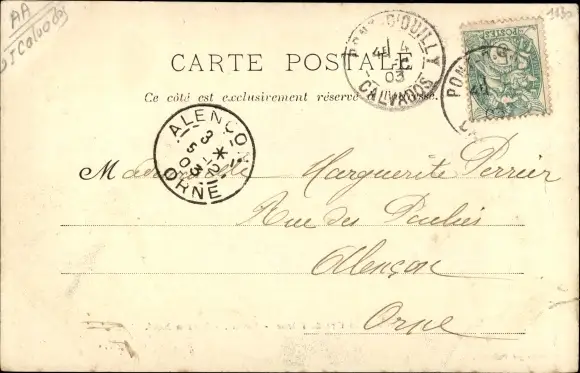 AA
Calvados
1130
CARTE POSTALE
Ce côté est exclusivement réservé à l'adresse.
PONT-D'OUILLY
4E
03
CALVADOS
POSTES
ALENÇON
3
5
03
ORNE
Mademoiselle Marguerite Perrier
Rue des
Alençon
Orne